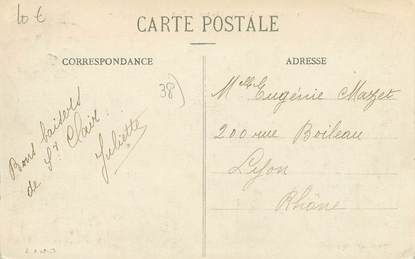 10 €
CARTE POSTALE
CORRESPONDANCE
ADRESSE
38)
Bons baisers
de St Clair.
Juliette
Mlle Eugénie Mazet
200 rue Boileau
Lyon
Rhône